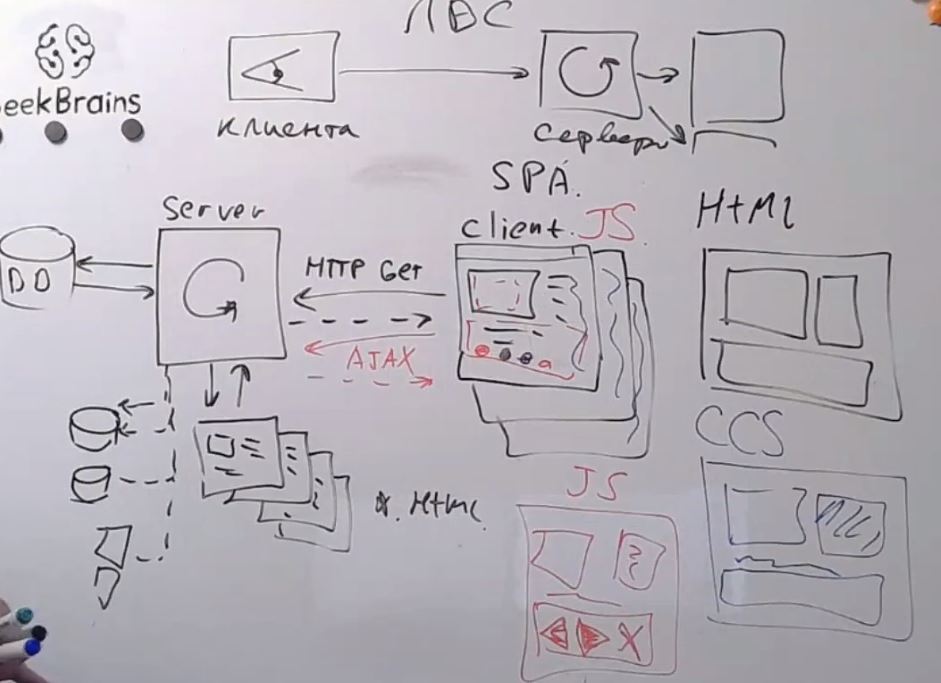 ЛВС
eekBrains
Клиента
Сервера
SPA.
Server
Client. JS.
HTML
DO
HTTP Get
AJAX
CCS
JS
*. Html